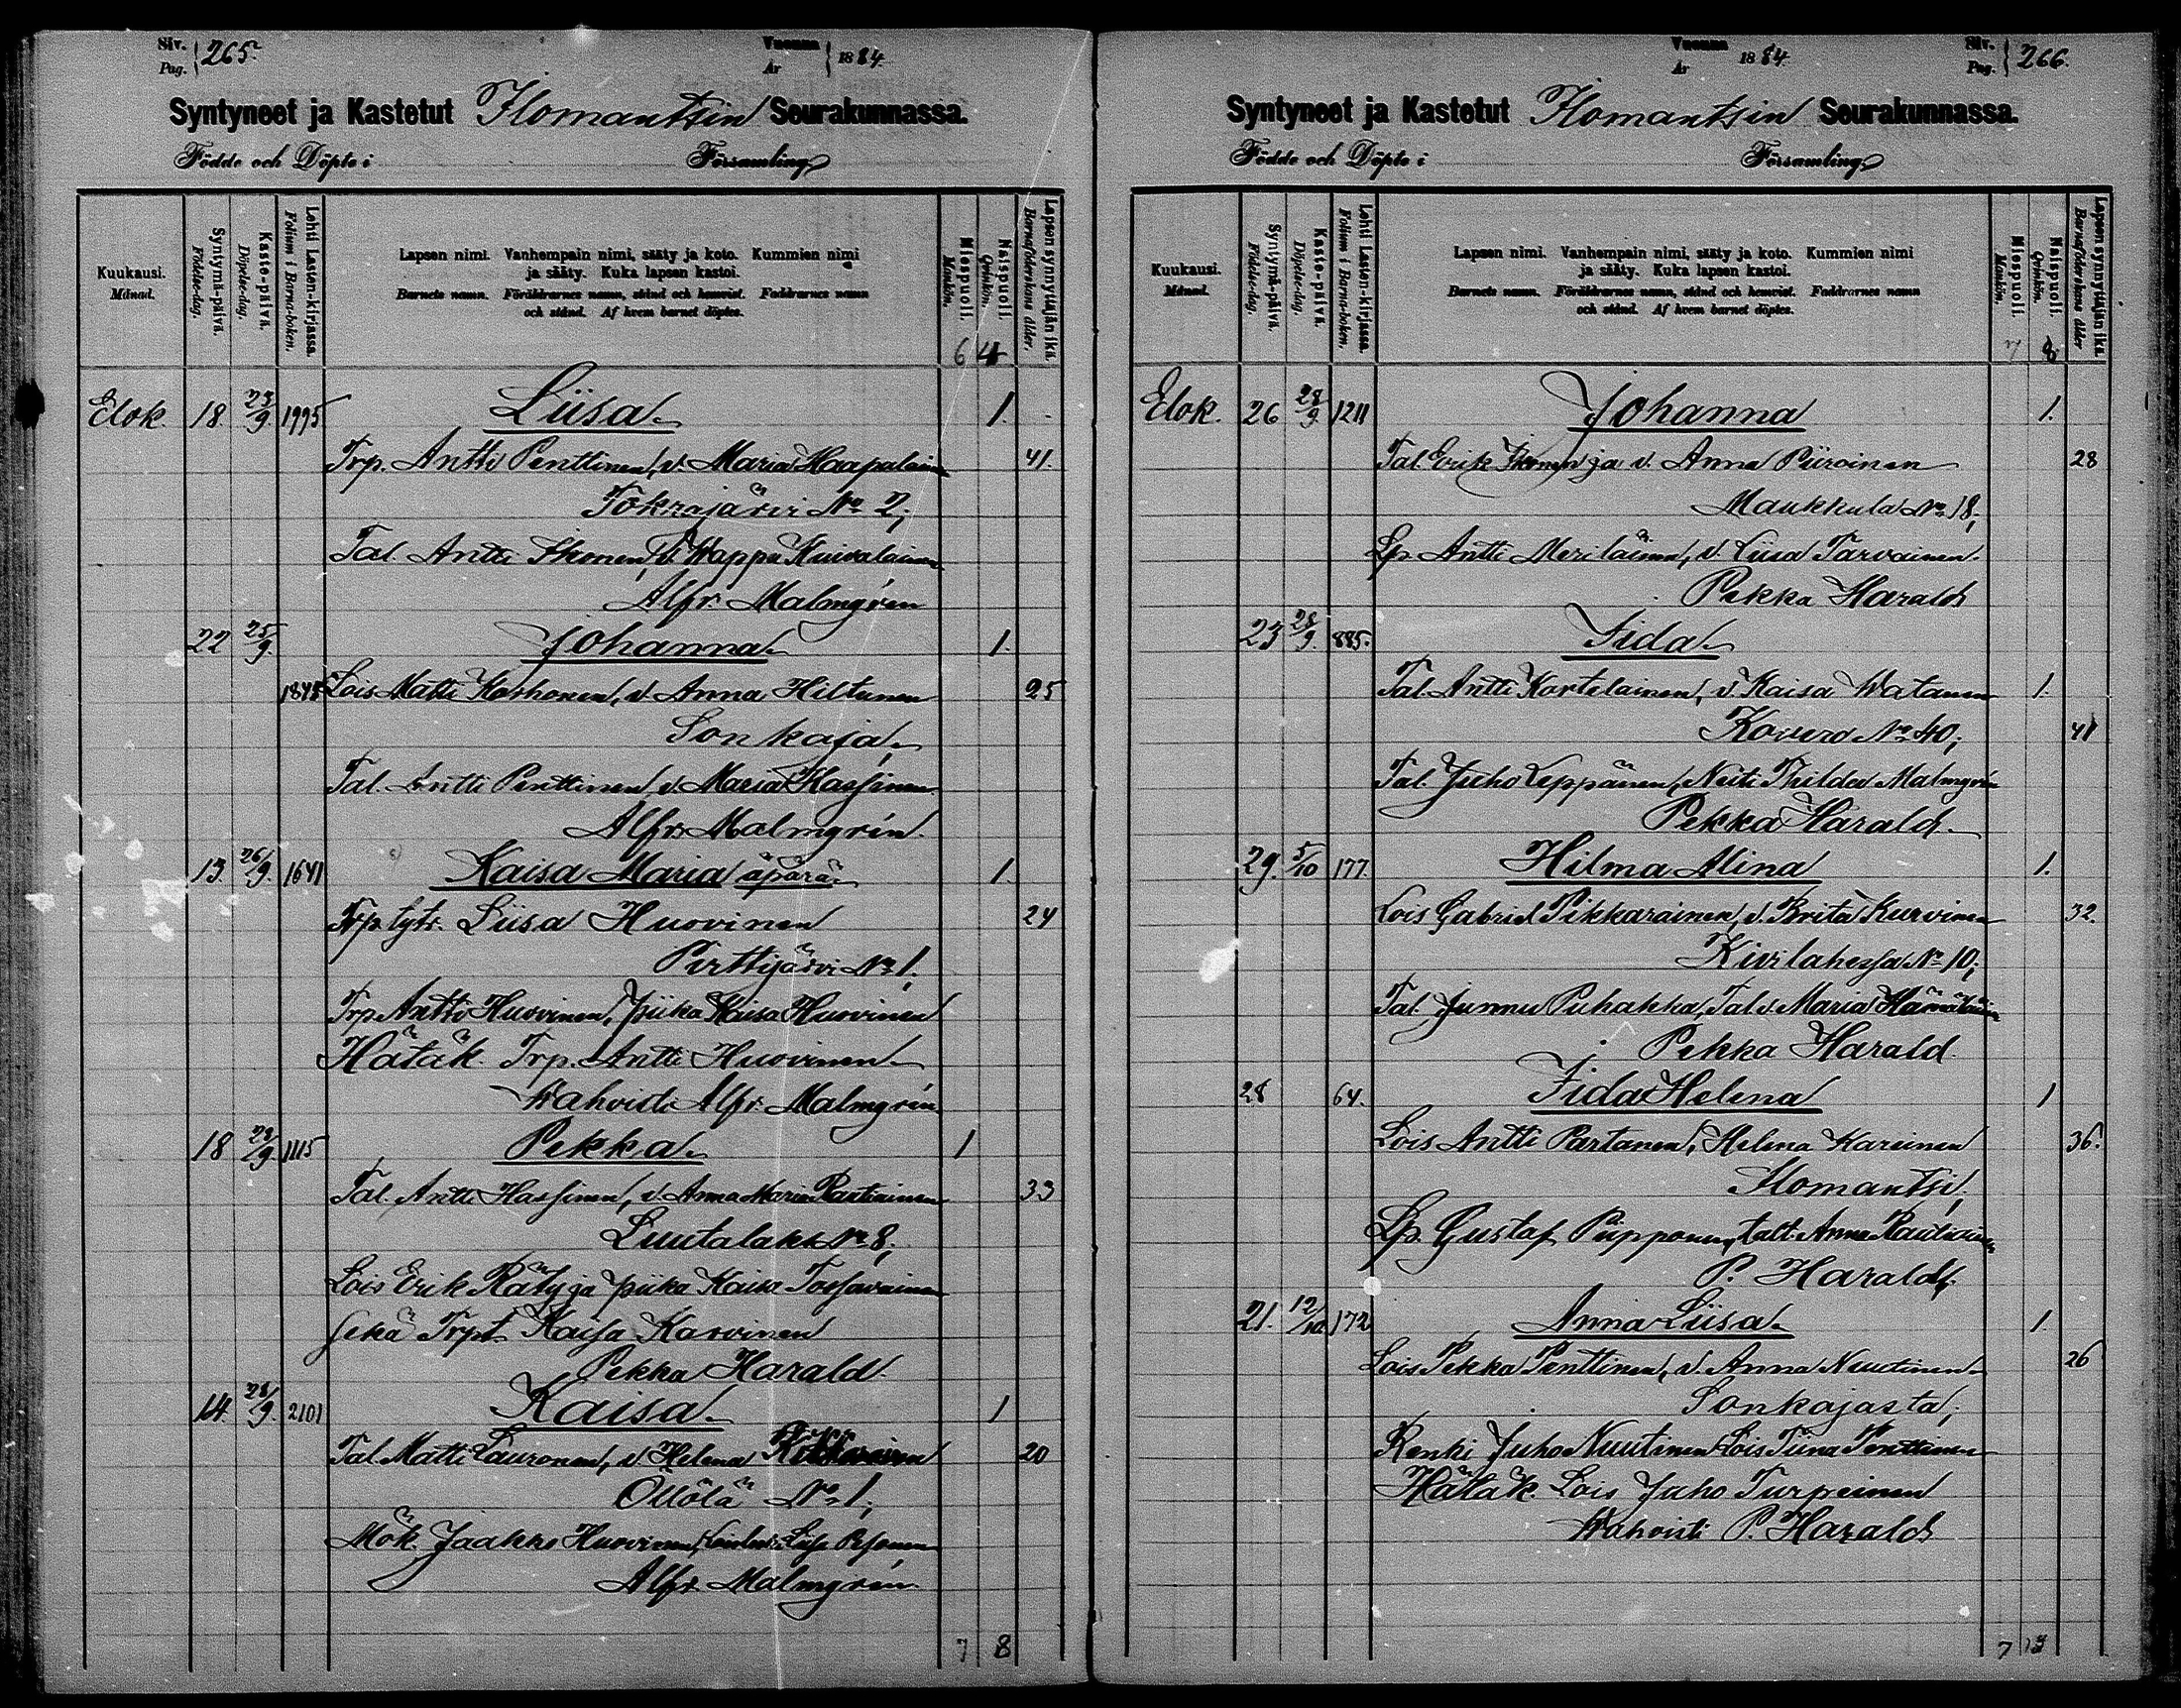 Siv. Pag. 265.
Vuonna År 1884.
Syntyneet ja Kastetut Ilomantsin Seurakunnassa.
Födde och Döpte i Församling.
Kuukausi. Månad.
Syntymä-päivä. Födelse-dag.
Kaste-päivä. Döpelse-dag.
Lehti Lasten-kirjassa. Folium i Barna-boken.
Lapsen nimi. Vanhempain nimi, sääty ja koto. Kummien nimi
ja sääty. Kuka lapsen kastoi.
Barnets namn. Föräldrarnes namn, stånd och hemvist. Faddrarnes namn
och stånd. Af hvem barnet döptes.
Miespuoli. Mankön.
Naispuoli. Qvinkön.
Lapsen synnyttäjän ikä. Barnaföderskans ålder.
6 4
Elok. 18. 23/9. 1995 Liisa 1.
Trp. Antti Penttinen, v. Maria Haapalainen 41.
Tokrajärvi No 2;
Tal. Antti Ikonen, v. Wappu Kuivalainen
Alfr. Malmgrén
22 25/9. Johanna 1.
1848 Lois Matti Korhonen, v. Anna Hiltunen 25
Sonkaja,
Tal. Antti Penttinen, v. Maria Hassinen
Alfr. Malmgrén.
13. 26/9. 1641 Kaisa Maria äpärä 1.
Trp. tytr. Liisa Huovinen 24
Perttijärvi No 1.
Trp. Antti Huovinen, Piika Kaisa Huovinen
Hätäk. Trp. Antti Huovinen
Wahvisti Alfr. Malmgrén
18 28/9. 1115 Pekka 1
Tal. Antti Hassinen, v. Anna Maria Rautiainen 33
Luutalaks No 8;
Lois Erik Räty ja piika Kaisa Tossavainen
sekä Trpt. Kaisa Karvinen
Pekka Harald.
14. 28/9. 2101 Kaisa 1
Tal. Matti Lauronen, v. Helena 20
Öllölä No 1;
Mök. Jaakko Huovinen, Liisa Pesonen
Alfr. Malmgrén.
7 8
Vuonna År 1884.
Siv. Pag. 266.
Syntyneet ja Kastetut Ilomantsin Seurakunnassa.
Födde och Döpte i Församling.
Kuukausi. Månad.
Syntymä-päivä. Födelse-dag.
Kaste-päivä. Döpelse-dag.
Lehti Lasten-kirjassa. Folium i Barna-boken.
Lapsen nimi. Vanhempain nimi, sääty ja koto. Kummien nimi
ja sääty. Kuka lapsen kastoi.
Barnets namn. Föräldrarnes namn, stånd och hemvist. Faddrarnes namn
och stånd. Af hvem barnet döptes.
Miespuoli. Mankön.
Naispuoli. Qvinkön.
Lapsen synnyttäjän ikä. Barnaföderskans ålder
7 8
Elok. 26 28/9. 1211 Johanna 1.
Tal. Erik Ikonen ja v. Anna Piiroinen 28
Maukkula No 18;
Lp. Antti Meriläinen, v. Liisa Tarvainen
Pekka Harald
23 28/9. 885. Iida
Tal. Antti Kortelainen, v. Kaisa Watanen 1.
Kovero No 40; 41
Tal. Juho Leppänen, Neiti Thilda Malmgrén
Pekka Harald.
29. 5/10 177. Hilma Alina 1.
Lois Gabriel Pikkarainen, v. Brita Kurvinen 32.
Kivilahessa No 10;
Tal. Junnu Puhakka, Tal. v. Maria Hämäläinen
Pekka Harald.
28 64. Iida Helena 1
Lois Antti Partanen, Helena Kareinen 36.
Ilomantsi,
Lp. Gustaf Piipponen, talt. Anna Rautiainen
P. Harald.
21. 12/10 172 Anna Liisa 1.
Lois Pekka Penttinen, v. Anna Nuutinen 26
Sonkajasta;
Renki Juho Nuutinen Lois Tiina Penttinen
Hätäk. Lois Juho Turpeinen
Wahvisti P. Harald
7 13